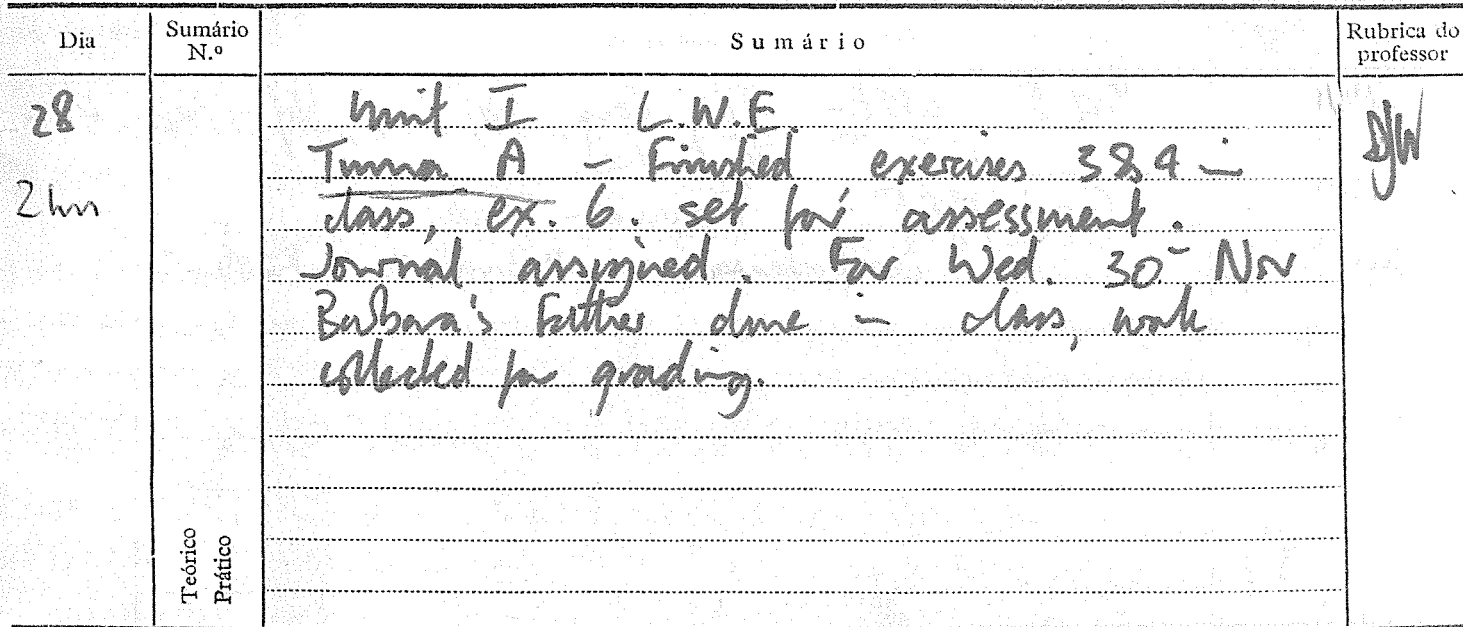 Dia
Sumário N.º
Sumário
Rubrica do professor
28
2 hrs
Unit I L.W.E.
Turma A - Finished exercises 3 & 4 in
class, ex. 6. set for assessment.
Journal assigned. For Wed. 30 Nov
Barbara's Father done in class, work
collected for grading.
DJW
Teórico
Prático